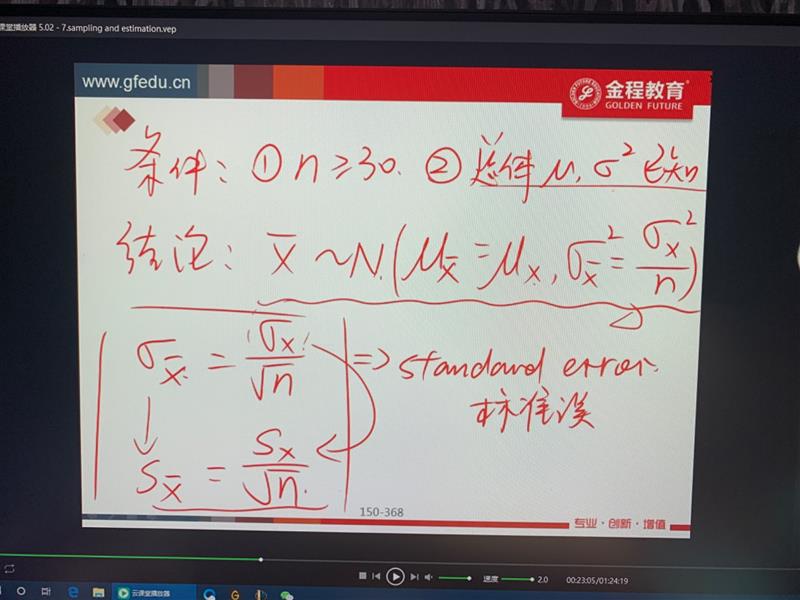 云课堂播放器 5.02 - 7.sampling and estimation.vep
www.gfedu.cn
金程教育
GOLDEN FUTURE
条件: ① n ≥ 30. ② 总体 μ, σ² 已知
结论: x̄ ~ N. (μx̄ = μx, σx̄² = σx²/n)
σx̄ = σx/√n => standard error.
标准误
sx̄ = sx/√n.
150-368
专业·创新·增值
速度 2.0 00:23:05/01:24:19
云课堂播放器